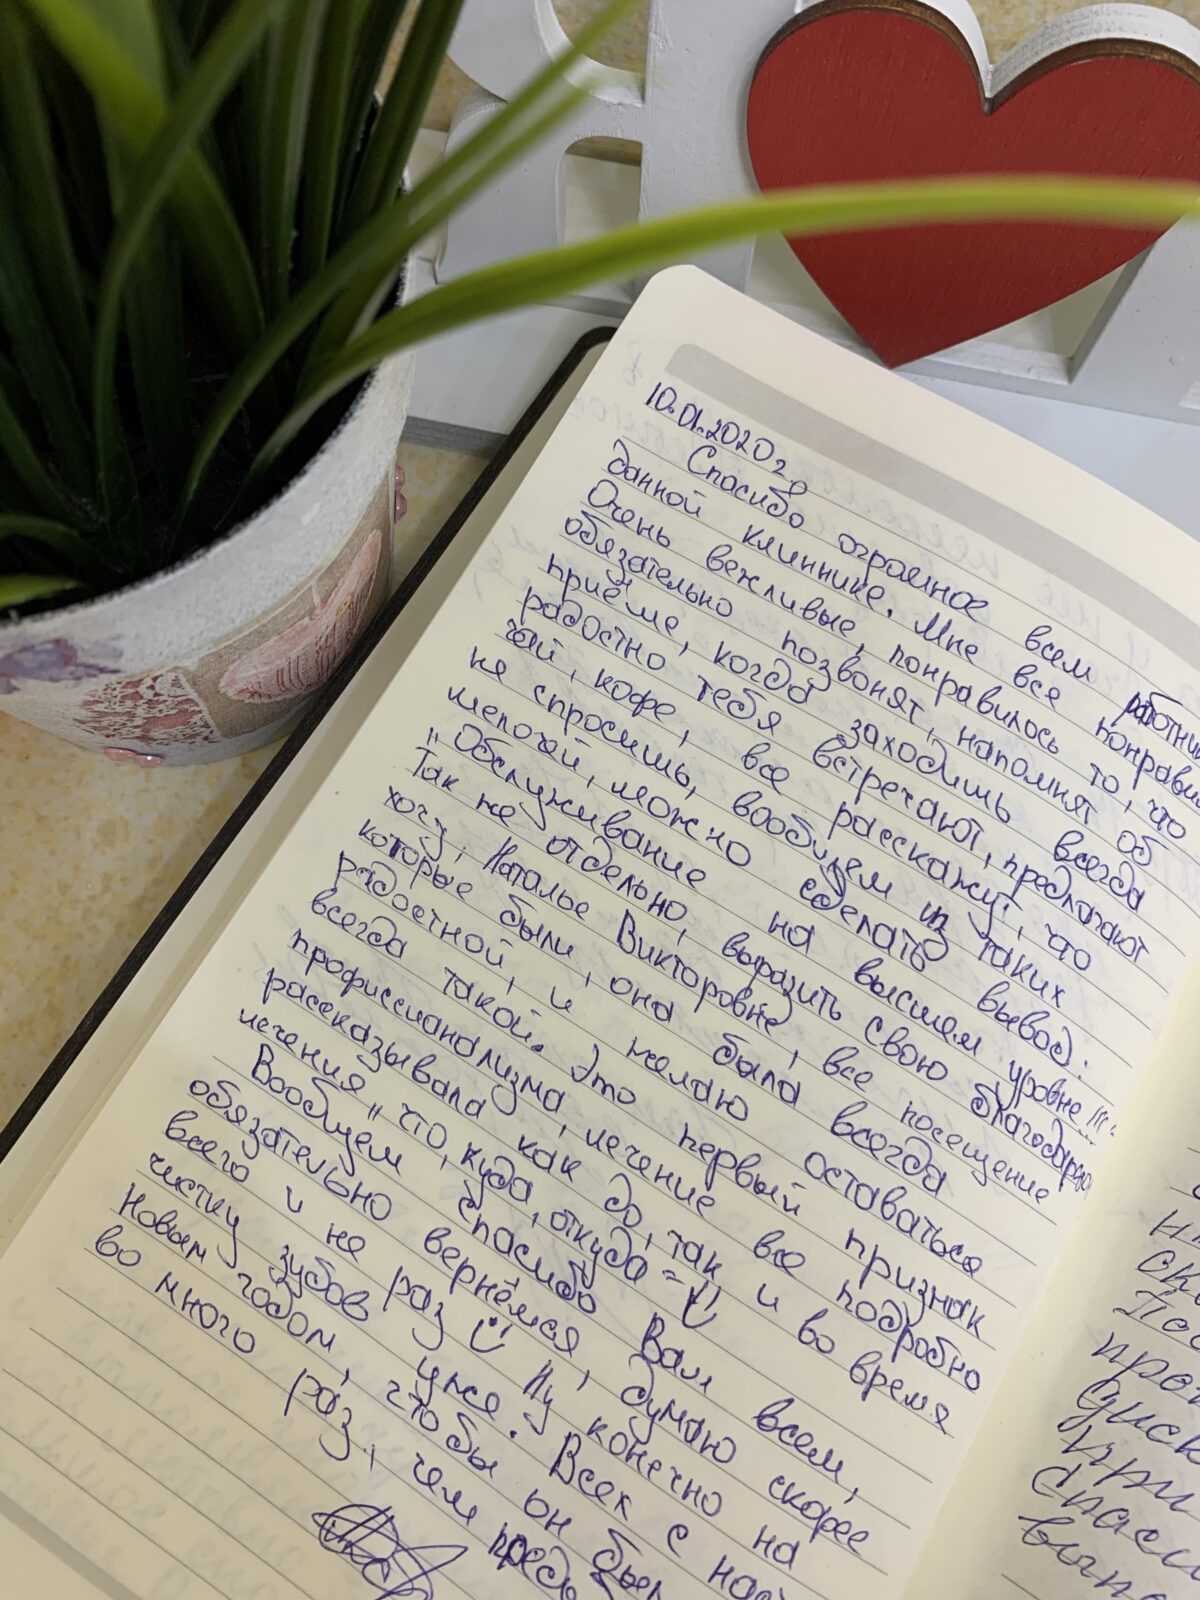 10.01.2020г
Спасибо огромное всем работни
данной клиннике. Мне все понрави
Очень вежливые, понравилось то, что
обязательно позвонят, напомнят об
приёме, когда заходишь всегда
радостно тебя встречают, предлагают
чай, кофе, все расскажут, что
не спросишь, вообщем из таких
мелочей, можно сделать вывод:
"Обслуживание на высшем уровне!!!"
Так же отдельно, выразить свою благодарно
хочу, Наталье Викторовне, все посещение
которые были, она была всегда
радостной, и желаю оставаться
всегда такой. Это первый признак
профиссианализма, лечение все подробно
рассказывала как до, так и во время
лечения "что, куда, откуда"
Вообщем спасибо Вам всем,
обязательно вернёмся, думаю скорее
всего и не раз Ну конечно на
чистку зубов уже. Всех с на
Новым годом, чтобы он был
во много раз, чем пред